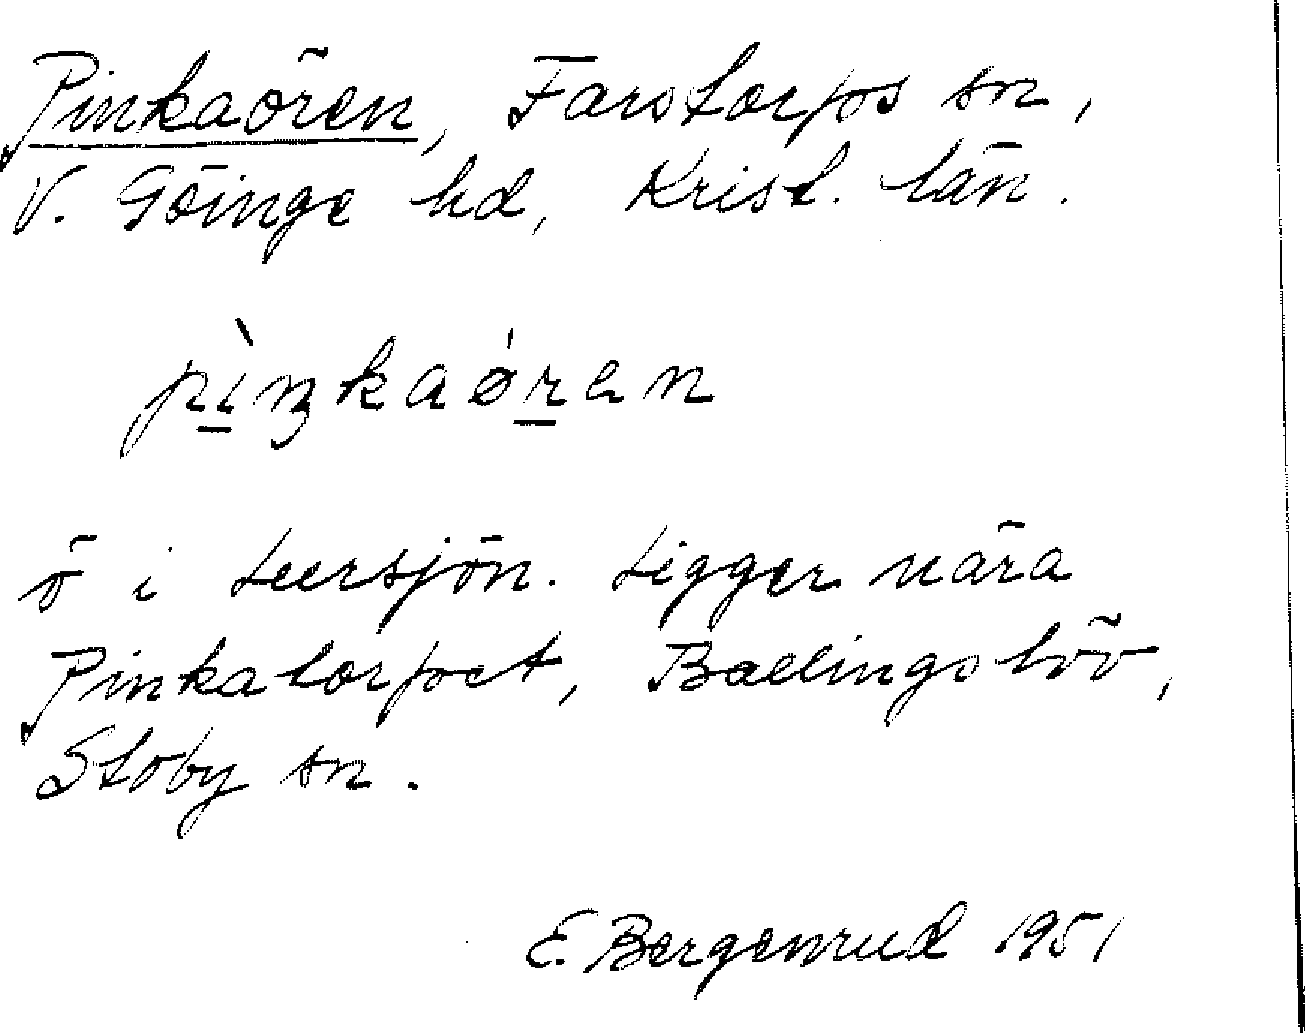 Pinkaören, Farstorps sn,
V. Göinge hd, Krist. län.
pìŋkaóren
ö i Luersjön. Ligger nära
Pinkatorpet, Ballingslöv,
Stoby sn.
E. Bergenrud 1951